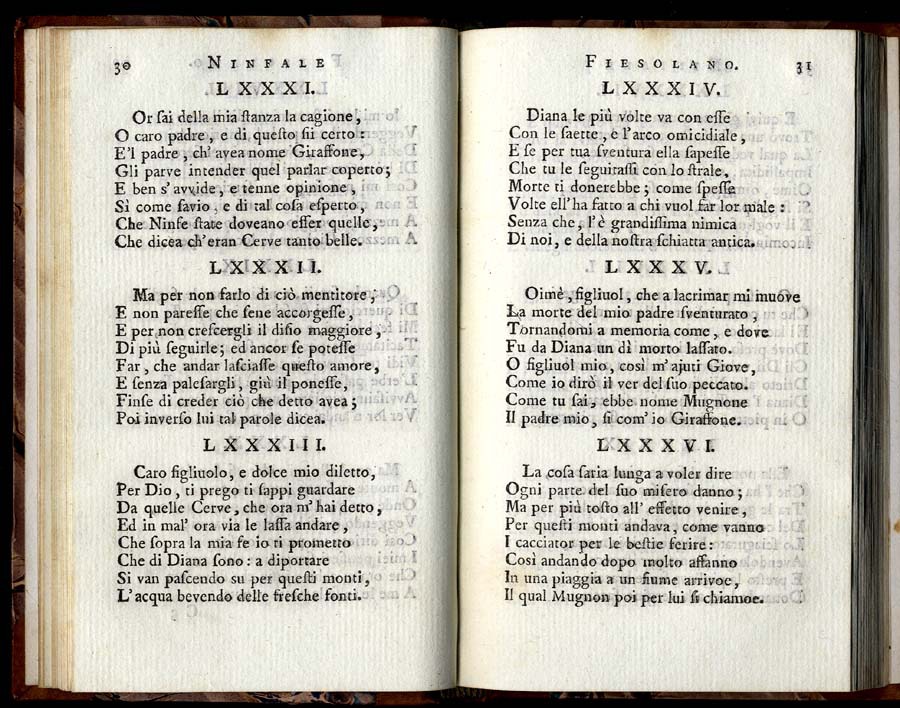 30 NINFALE
LXXXI.
Or sai della mia stanza la cagione,
O caro padre, e di questo sii certo:
E'l padre, ch' avea nome Giraffone,
Gli parve intender quel parlar coperto;
E ben s' avvide, e tenne opinione,
Sì come savio, e di tal cosa esperto,
Che Ninfe state doveano esser quelle,
Che dicea ch'eran Cerve tanto belle.
LXXXII.
Ma per non farlo di ciò mentitore,
E non paresse che sene accorgesse,
E per non crescergli il disio maggiore,
Di più seguirle; ed ancor se potesse
Far, che andar lasciasse questo amore,
E senza palesargli, giù il ponesse,
Finse di creder ciò che detto avea;
Poi inverso lui tal parole dicea.
LXXXIII.
Caro figliuolo, e dolce mio diletto,
Per Dio, ti prego ti sappi guardare
Da quelle Cerve, che ora m' hai detto,
Ed in mal' ora via le lassa andare,
Che sopra la mia fe io ti prometto
Che di Diana sono: a diportare
Si van pascendo su per questi monti,
L'acqua bevendo delle fresche fonti.
FIESOLANO. 31
LXXXIV.
Diana le più volte va con esse
Con le saette, e l'arco omicidiale,
E se per tua sventura ella sapesse
Che tu le seguitassi con lo strale,
Morte ti donerebbe; come spesse
Volte ell'ha fatto a chi vuol far lor male:
Senza che, l'è grandissima nimica
Di noi, e della nostra schiatta antica.
LXXXV.
Oimè, figliuol, che a lacrimar mi muove
La morte del mio padre sventurato,
Tornandomi a memoria come, e dove
Fu da Diana un dì morto lassato.
O figliuol mio, così m'ajuti Giove,
Come io dirò il ver del suo peccato.
Come tu sai, ebbe nome Mugnone
Il padre mio, sì com' io Giraffone.
LXXXVI.
La cosa saria lunga a voler dire
Ogni parte del suo misero danno;
Ma per più tosto all' effetto venire,
Per questi monti andava, come vanno
I cacciator per le bestie ferire:
Così andando dopo molto affanno
In una piaggia a un fiume arrivoe,
Il qual Mugnon poi per lui si chiamoe.